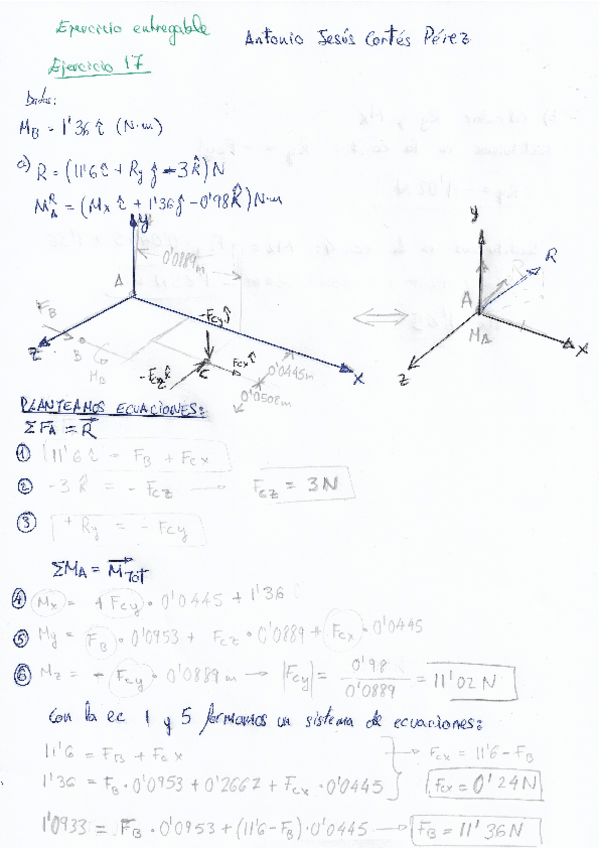 Ejercicio entregable Antonio Jesús Cortés Pérez
Ejercicio 17
Datos:
M_B = 1'36 î (N·m)
a) R = (11'6 î + Ry ĵ - 3 k̂) N
M_A^R = (Mx î + 1'36 ĵ - 0'98 k̂) N·m
y
0'0889 m
A
F_B
Z
B
M_B
-Fcy ĵ
Fcx î
C
-Fcz k̂
0'0445 m
0'0508 m
X
y
R
A
M_A
Z
X
PLANTEAMOS ECUACIONES:
ΣF_A = R⃗
① 11'6 î = F_B + Fcx
② -3 k̂ = - Fcz → Fcz = 3N
③ + Ry = - Fcy
ΣM_A = M⃗_TOT
④ Mx = + Fcy · 0'0445 + 1'36
⑤ My = F_B · 0'0953 + Fcz · 0'0889 + Fcx · 0'0445
⑥ Mz = - Fcy · 0'0889 m → |Fcy| = 0'98 / 0'0889 = 11'02 N
Con la ec 1 y 5 formamos un sistema de ecuaciones:
11'6 = F_B + Fcx → Fcx = 11'6 - F_B
1'36 = F_B · 0'0953 + 0'2667 + Fcx · 0'0445 Fcx = 0'24 N
1'0933 = F_B · 0'0953 + (11'6 - F_B) · 0'0445 → F_B = 11'36 N